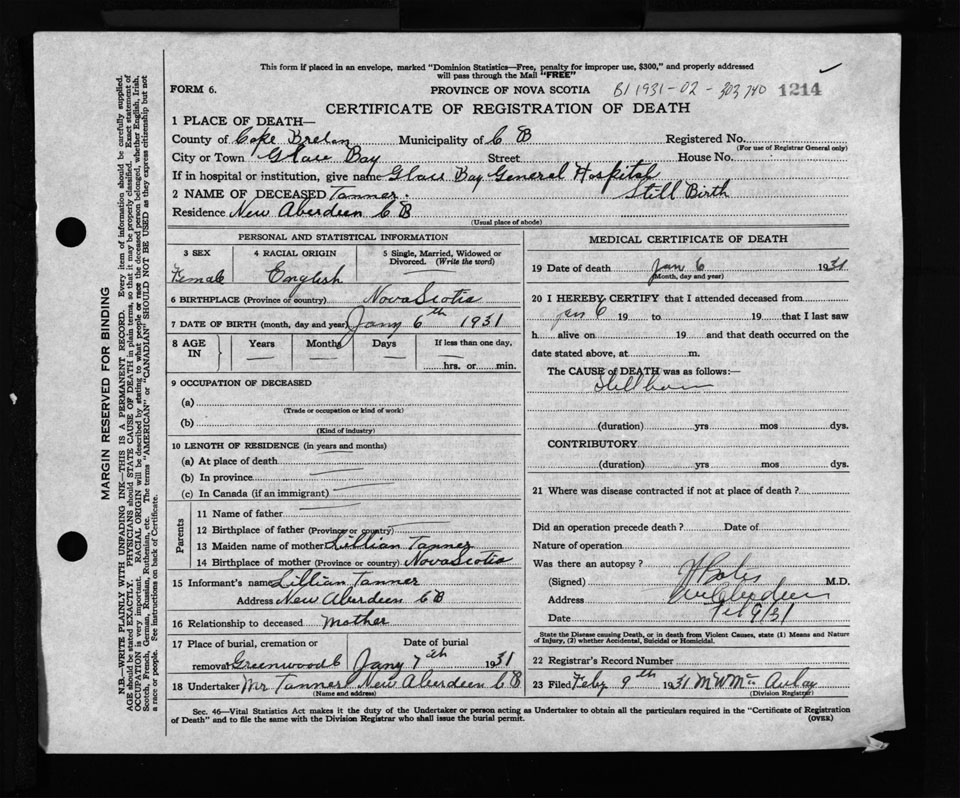 This form if placed in an envelope, marked "Dominion Statistics—Free, penalty for improper use, $300," and properly addressed
will pass through the Mail "FREE"
FORM 6. PROVINCE OF NOVA SCOTIA B1 1931-02-303740 1214
CERTIFICATE OF REGISTRATION OF DEATH
1 PLACE OF DEATH—
County of Cape Breton Municipality of C B Registered No.
(For use of Registrar General only)
City or Town Glace Bay Street House No.
If in hospital or institution, give name Glace Bay General Hospital
2 NAME OF DECEASED Tanner Still Birth
Residence New Aberdeen C B
(Usual place of abode)
PERSONAL AND STATISTICAL INFORMATION
3 SEX 4 RACIAL ORIGIN 5 Single, Married, Widowed or
Divorced. (Write the word)
Female English
6 BIRTHPLACE (Province or country) Nova Scotia
7 DATE OF BIRTH (month, day and year) Jany 6th 1931
8 AGE IN Years Months Days If less than one day,
hrs. or min.
9 OCCUPATION OF DECEASED
(a)
(Trade or occupation or kind of work)
(b)
(Kind of industry)
10 LENGTH OF RESIDENCE (in years and months)
(a) At place of death
(b) In province
(c) In Canada (if an immigrant)
Parents
11 Name of father
12 Birthplace of father (Province or country)
13 Maiden name of mother Lillian Tanner
14 Birthplace of mother (Province or country) Nova Scotia
15 Informant's name Lillian Tanner
Address New Aberdeen C B
16 Relationship to deceased Mother
17 Place of burial, cremation or Date of burial
removal Greenwood Jany 7th 1931
18 Undertaker Mr Tanner New Aberdeen C B
(Name and address)
MEDICAL CERTIFICATE OF DEATH
19 Date of death Jan 6 1931
(Month, day and year)
20 I HEREBY CERTIFY that I attended deceased from
Jan 6 19 to 19 that I last saw
h alive on 19 and that death occurred on the
date stated above, at m.
The CAUSE of DEATH was as follows:—
Stillborn
(duration) yrs mos dys.
CONTRIBUTORY
(duration) yrs mos dys.
21 Where was disease contracted if not at place of death?
Did an operation precede death? Date of
Nature of operation
Was there an autopsy?
(Signed) M.D.
Address New Aberdeen
Date Feb 9/31
State the Disease causing Death, or in death from Violent Causes, state (1) Means and Nature
of Injury, (2) whether Accidental, Suicidal or Homicidal.
22 Registrar's Record Number
23 Filed Feby 9th 1931 M W McAulay
(Division Registrar)
Sec. 46—Vital Statistics Act makes it the duty of the Undertaker or person acting as Undertaker to obtain all the particulars required in the "Certificate of Registration
of Death" and to file the same with the Division Registrar who shall issue the burial permit. (OVER)
MARGIN RESERVED FOR BINDING
N.B.—WRITE PLAINLY WITH UNFADING INK—THIS IS A PERMANENT RECORD. Every item of information should be carefully supplied.
AGE should be stated EXACTLY. PHYSICIANS should STATE CAUSE OF DEATH in plain terms, so that it may be properly classified. Exact statement of
OCCUPATION is very important. RACIAL ORIGIN will be described by stating to what people or race the deceased person belonged, whether English, Irish,
Scotch, French, German, Russian, Ruthenian, etc. The terms "AMERICAN" or "CANADIAN" SHOULD NOT BE USED as they express citizenship but not
a race or people. See instructions on back of Certificate.